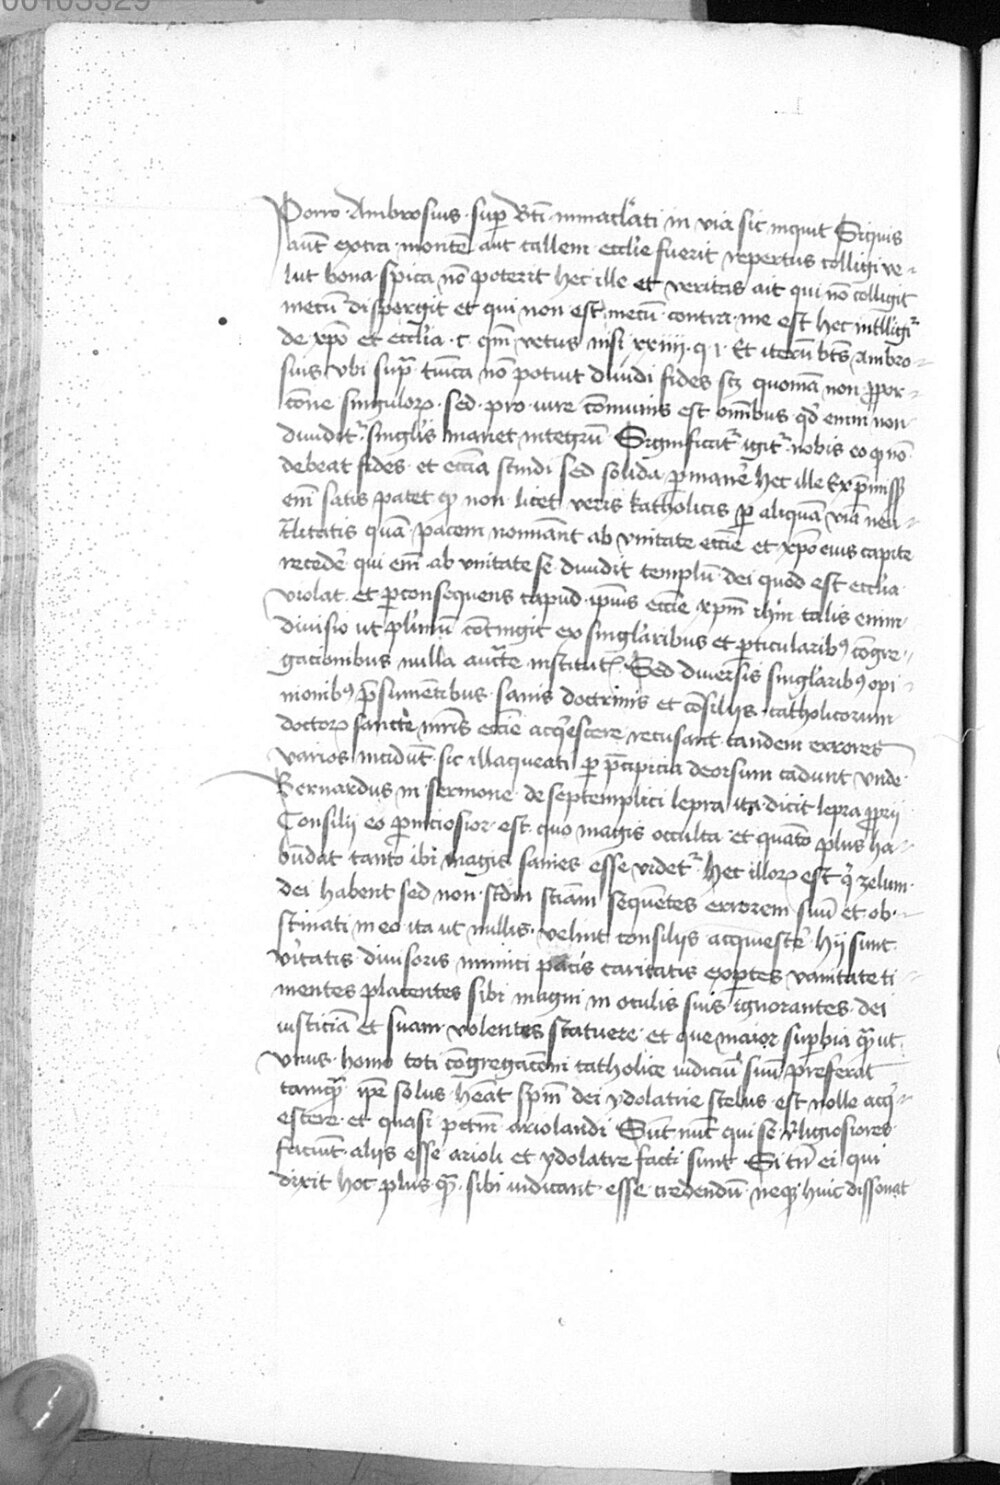 00103329
Porro Ambrosius sup Bti immaclati in via sic inquit Siquis
aut extra montē aut callem ecclie fuerit repertus colligi ve-
lut bona spica nō poterit hec ille et veritas ait qui nō colligit
mecū dispergit et qui non est mecū contra me est hec intlligr
de xpo et ecclia c qm vetus nisi xxiiii q i Et iterū bts Ambro-
sius vbi supra tunica nō potuit diuidi fides scz quoniā non ppor-
cōne singulorum sed pro iure cōmunis est omībus qd enim non
diuidit singlis manet integrū Significatr igitr nobis eo qd nō
debeat fides et eccia scindi sed solida pmanere hec ille Ex pmissis
em satis patet qd non licet veris katholicis p aliquam viā neu-
tralitatis quā pacem nominant ab vnitate eccie et xpo eius capite
recede qui em ab vnitate se diuidit templū dei quod est ecclia
violat et pconsequens capud ipius eccie xpm ihm talis enim
diuisio ut plimū cōtingit ex singlaribus et pticularibus cōgre-
gacionibus nulla aucte institut Sed diuersis singlaribus opi-
nionibus psumentibus sanis doctrinis et cōsiliis catholicorum
doctorum sancte mris eccie acqescere recusant tandem errores
varios incidūt sic illaqueati p pcipicia deorsum cadunt vnde
Bernardus in sermone de septemplici lepra ita dicit lepra pprii
Consilii eo pniciosior est quo magis occulta et quāto plus ha-
būdat tanto ibi magis sanies esse videtr Hec illorum est q zelum
dei habent sed non scdm sciam sequentes errorem suū et ob-
stinati in eo ita ut nullis velint consiliis acquiesce hij sunt
vitatis diuisoris inimici pacis caritatis expertes vanitate ti-
mentes placentes sibi magni in oculis suis ignorantes dei
iusticiā et suam volentes statuere et que maior supbia quā ut
vnus homo toti cōgregacōni catholice iudiciū suū preferat
tamqā ipe solus heat spm dei ydolatrie scelus est nolle acq-
escere et quasi pctm ariolandi Sūt nūc qui se religiosiores
faciunt aliis esse arioli et ydolatre facti sunt Si tn ei qui
dixit hoc plus qā sibi iudicant esse credendū neq huic dissonat